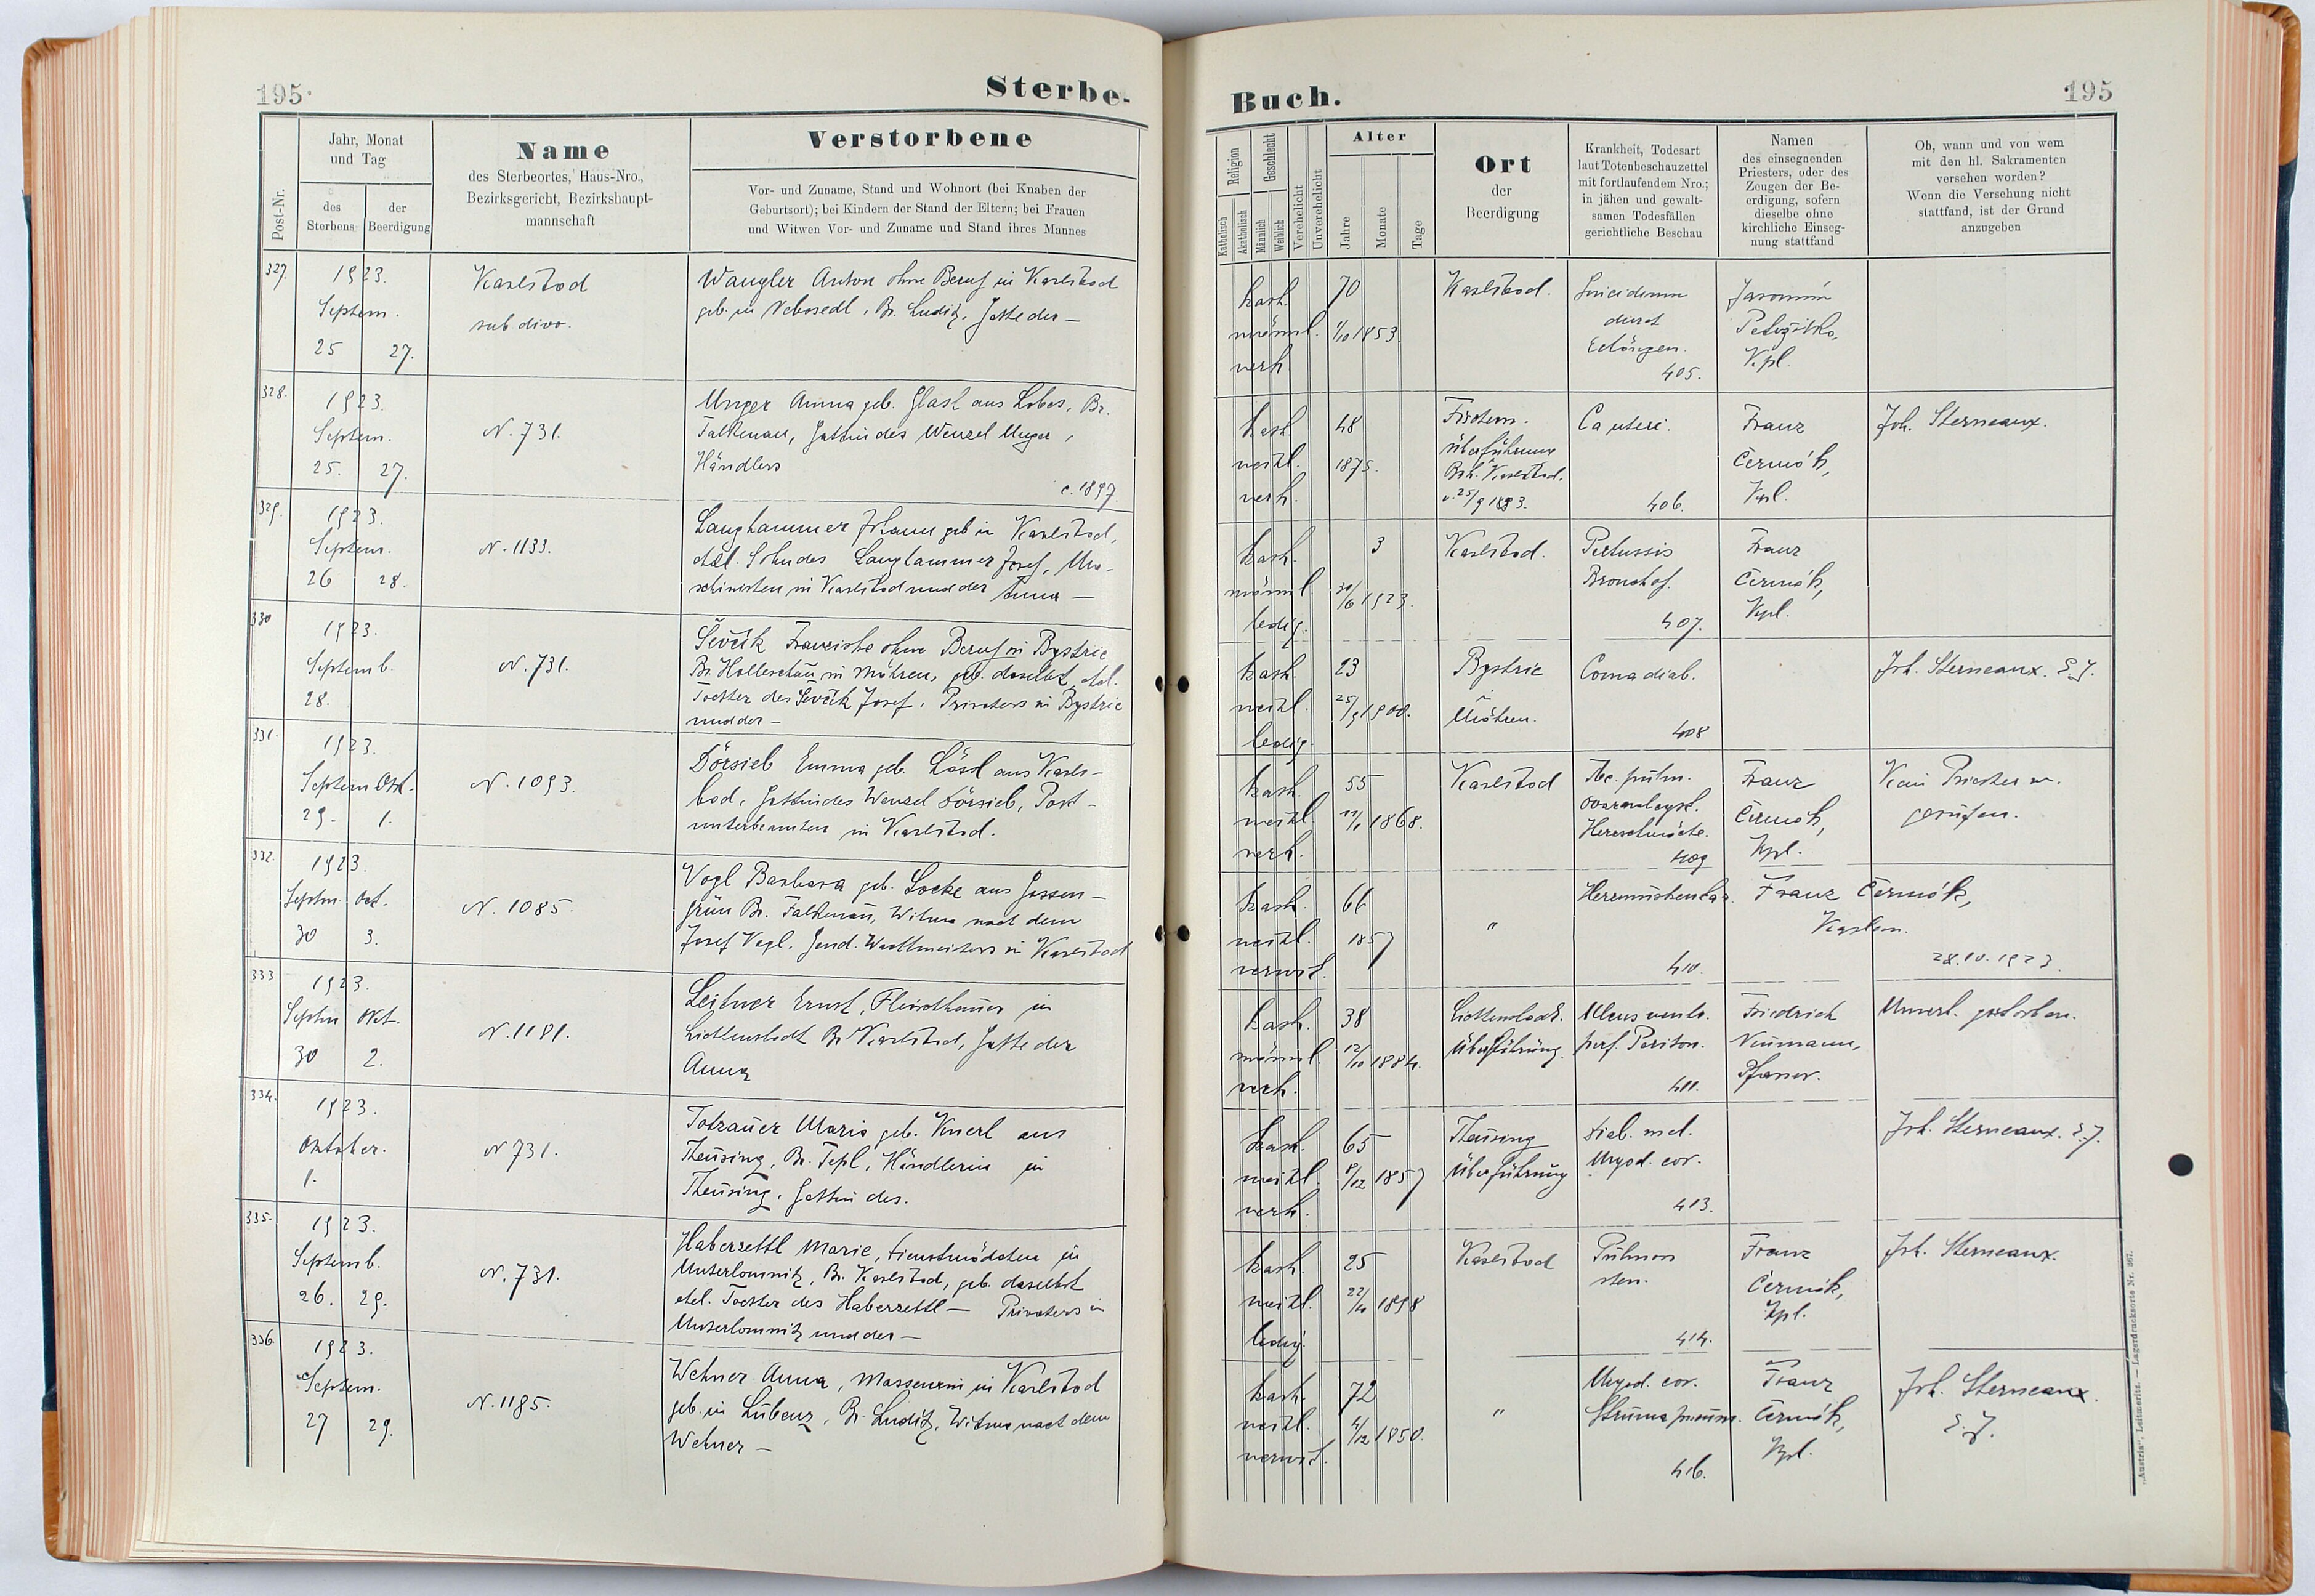 195.
Sterbe-
Post-Nr.
Jahr, Monat
und Tag
des
Sterbens
der
Beerdigung
Name
des Sterbeortes, Haus-Nro.,
Bezirksgericht, Bezirkshaupt-
mannschaft
Verstorbene
Vor- und Zuname, Stand und Wohnort (bei Knaben der
Geburtsort); bei Kindern der Stand der Eltern; bei Frauen
und Witwen Vor- und Zuname und Stand ihres Mannes
327.
1923.
Septem.
25 27.
Karlsbad
sub divo.
Wangler Anton ohne Beruf in Karlsbad
geb. in Nebosedl, Bz. Luditz, Gatte der —
328.
1923.
Septem.
25. 27.
N. 731.
Unger Anna geb. Glasl aus Lobs, Bz.
Falkenau, Gattin des Wenzel Unger,
Händlers
c. 1897.
329.
1923.
Septem.
26 28.
N. 1133.
Langhammer Johann geb in Karlsbad,
ehel. Sohn des Langhammer Josef, Ma-
schinisten in Karlsbad und der Anna —
330
1923.
Septemb.
28.
N. 731.
Ševčik Franziska ohne Beruf in Bystric
Bz. Holleschau in Mähren, geb. daselbst, ehel.
Tochter des Ševčik Josef, Privaters in Bystric
und der —
331.
1923.
Septem Okt.
29. 1.
N. 1093.
Dörsieb Emma geb. Lösl aus Karls-
bad, Gattin des Wenzel Dörsieb, Post-
unterbeamten in Karlsbad.
332.
1923.
Septm. Okt.
30 3.
N. 1085.
Vogl Barbara geb. Locke aus Gossen-
grün Bz. Falkenau, Witwe nach dem
Josef Vogl. Gend. Wachtmeisters in Karlsbad
333
1923.
Septm Okt.
30 2.
N. 1181.
Leitner Ernst, Fleischhauer in
Lichtenstadt Bz Karlsbad, Gatte der
Anna
334.
1923.
Oktober.
1.
N 731.
Totzauer Maria geb. Knerl aus
Theusing, Bz. Tepl, Händlerin in
Theusing, Gattin des.
335.
1923.
Septemb.
26. 29.
N. 731.
Haberzettl Marie, Dienstmädchen in
Unterlomnitz, Bz. Karlsbad, geb. daselbst
ehel. Tochter des Haberzettl — Privaters in
Unterlomnitz und der —
336
1923.
Septem.
27 29.
N. 1185.
Wehner Anna, Masseurin in Karlsbad
geb. in Lubenz, Bz. Luditz, Witwe nach dem
Wehner —
Buch.
195
Religion
Katholisch
Akatholisch
Geschlecht
Männlich
Weiblich
Verehelicht
Unverehelicht
Alter
Jahre
Monate
Tage
Ort
der
Beerdigung
Krankheit, Todesart
laut Totenbeschauzettel
mit fortlaufendem Nro.;
in jähen und gewalt-
samen Todesfällen
gerichtliche Beschau
Namen
des einsegnenden
Priesters, oder des
Zeugen der Be-
erdigung, sofern
dieselbe ohne
kirchliche Einseg-
nung stattfand
Ob, wann und von wem
mit den hl. Sakramenten
versehen worden?
Wenn die Versehung nicht
stattfand, ist der Grund
anzugeben
kath.
männl.
verh.
70
1/10 1853.
Karlsbad.
Suicidium
durch
Erhängen.
405.
Jaromír
Kpl.
kath
weibl.
verh.
48
1875.
Fischern.
Überführung
Bzh. Karlsbad.
v. 25/9 1923.
Ca uteri.
406.
Franz
Čermák,
Kpl.
Joh. Sterneaux.
kath.
männl
ledig.
3
30/6 1923.
Karlsbad.
Pertussis
407.
Franz
Čermák,
Kpl.
kath.
weibl.
ledig.
23
25/9 1900.
Bystric
in
Mähren.
Coma diab.
408
Joh. Sterneaux. S.J.
kath.
weibl
verh.
55
11/1 1868.
Karlsbad
Tbc. pulm.
Herzschwäche.
409
Franz
Čermák,
Kpl.
Kein Priester w.
gerufen.
kath.
weibl.
verwit.
66
1857
"
410.
Franz Čermák,
Kaplan.
28.10.1923.
kath.
männl.
verh.
38
12/10 1884.
Lichtenstadt.
Überführung.
Ulcus ventr.
perf. Periton.
411.
Friedrich
Neumann,
Pfarrer.
Unvers. gestorben.
kath.
weibl.
verh.
65
8/12 1857
Theusing
Überführung
Diab. mel.
Myod. cor.
413.
Joh. Sterneaux. S.J.
kath.
weibl.
ledig.
25
22/4 1898
Karlsbad
414.
Franz
Čermák,
Kpl.
Joh. Sterneaux.
kath.
weibl.
verwit.
72
4/12 1850.
"
Myod. cor.
Struma
416.
Franz
Čermák,
Kpl.
Joh. Sterneaux.
S.J.
„Austria", Leitmeritz. — Lagerdrucksorte Nr. 367.